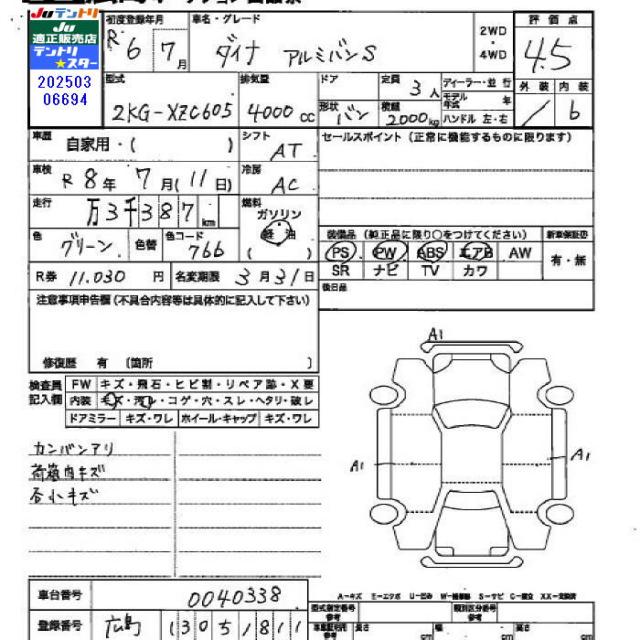 Ju テントリ
JU
適正販売店
テントリ
★スター
202503
06694
初度登録年月
R 6 7月
車名・グレード
ダイナ アルミバンS
2WD
・
4WD
評価点
4.5
型式
2KG-XZC605
排気量
4000 cc
ドア
形状 バン
定員 3人
積載 2000kg
ディーラー・並行
モデル年式 年
ハンドル 左・右
外装 内装
/ 6
車歴 自家用・( )
シフト AT
セールスポイント (正常に機能するものに限ります)
車検 R 8年 7月(11日)
冷房 AC
走行 万3千387km
燃料
ガソリン
軽油
( )
色 グリーン 色替 色コード 766
装備品 (純正品に限り○をつけてください)
新車保証書
PS PW ABS エアB AW
SR ナビ TV カワ
有・無
R券 11.030円 名変期限 3月31日
後日品
注意事項申告欄(不具合内容等は具体的に記入して下さい)
修復歴 有 [箇所 ]
検査員
記入欄
FW キズ・飛石・ヒビ割・リペア跡・X要
内装 キズ・汚レ・コゲ・穴・スレ・ヘタリ・破レ
ドアミラー キズ・ワレ ホイール・キャップ キズ・ワレ
カンバンアリ
荷箱内キズ
各小キズ
A1
A1
A1
車台番号 0040338
登録番号 広島 130 51811
A-キズ E-エクボ U-凹み W-補修跡 S-サビ C-腐食 XX-交換済
型式指定番号
参考
類別区分番号
参考
車車証明用
参考
長さ cm
幅 cm
高さ cm